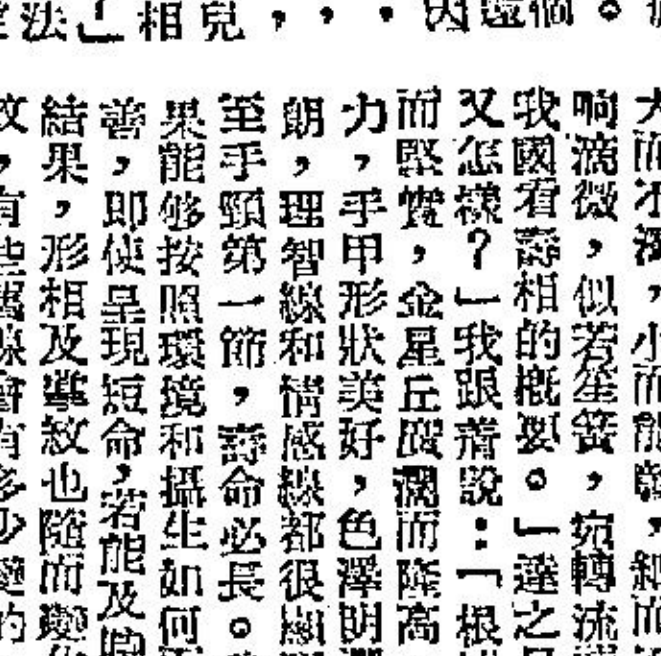 法」相兒,,,因這個。
大而不濁,小而能彰,細而
响滴微,似若笙簧,宛轉流
我國看壽相的概要。」達之
又怎樣?」我跟着說:「根
而堅實,金星丘廣濶而隆高
力,手甲形狀美好,色澤明
朗,理智線和情感線都很顯
至手頸第一節,壽命必長。
果能够按照環境和攝生如何
善,即使呈現短命,若能及
結果,形相及掌紋也隨而變
紋,有些
有多少變的